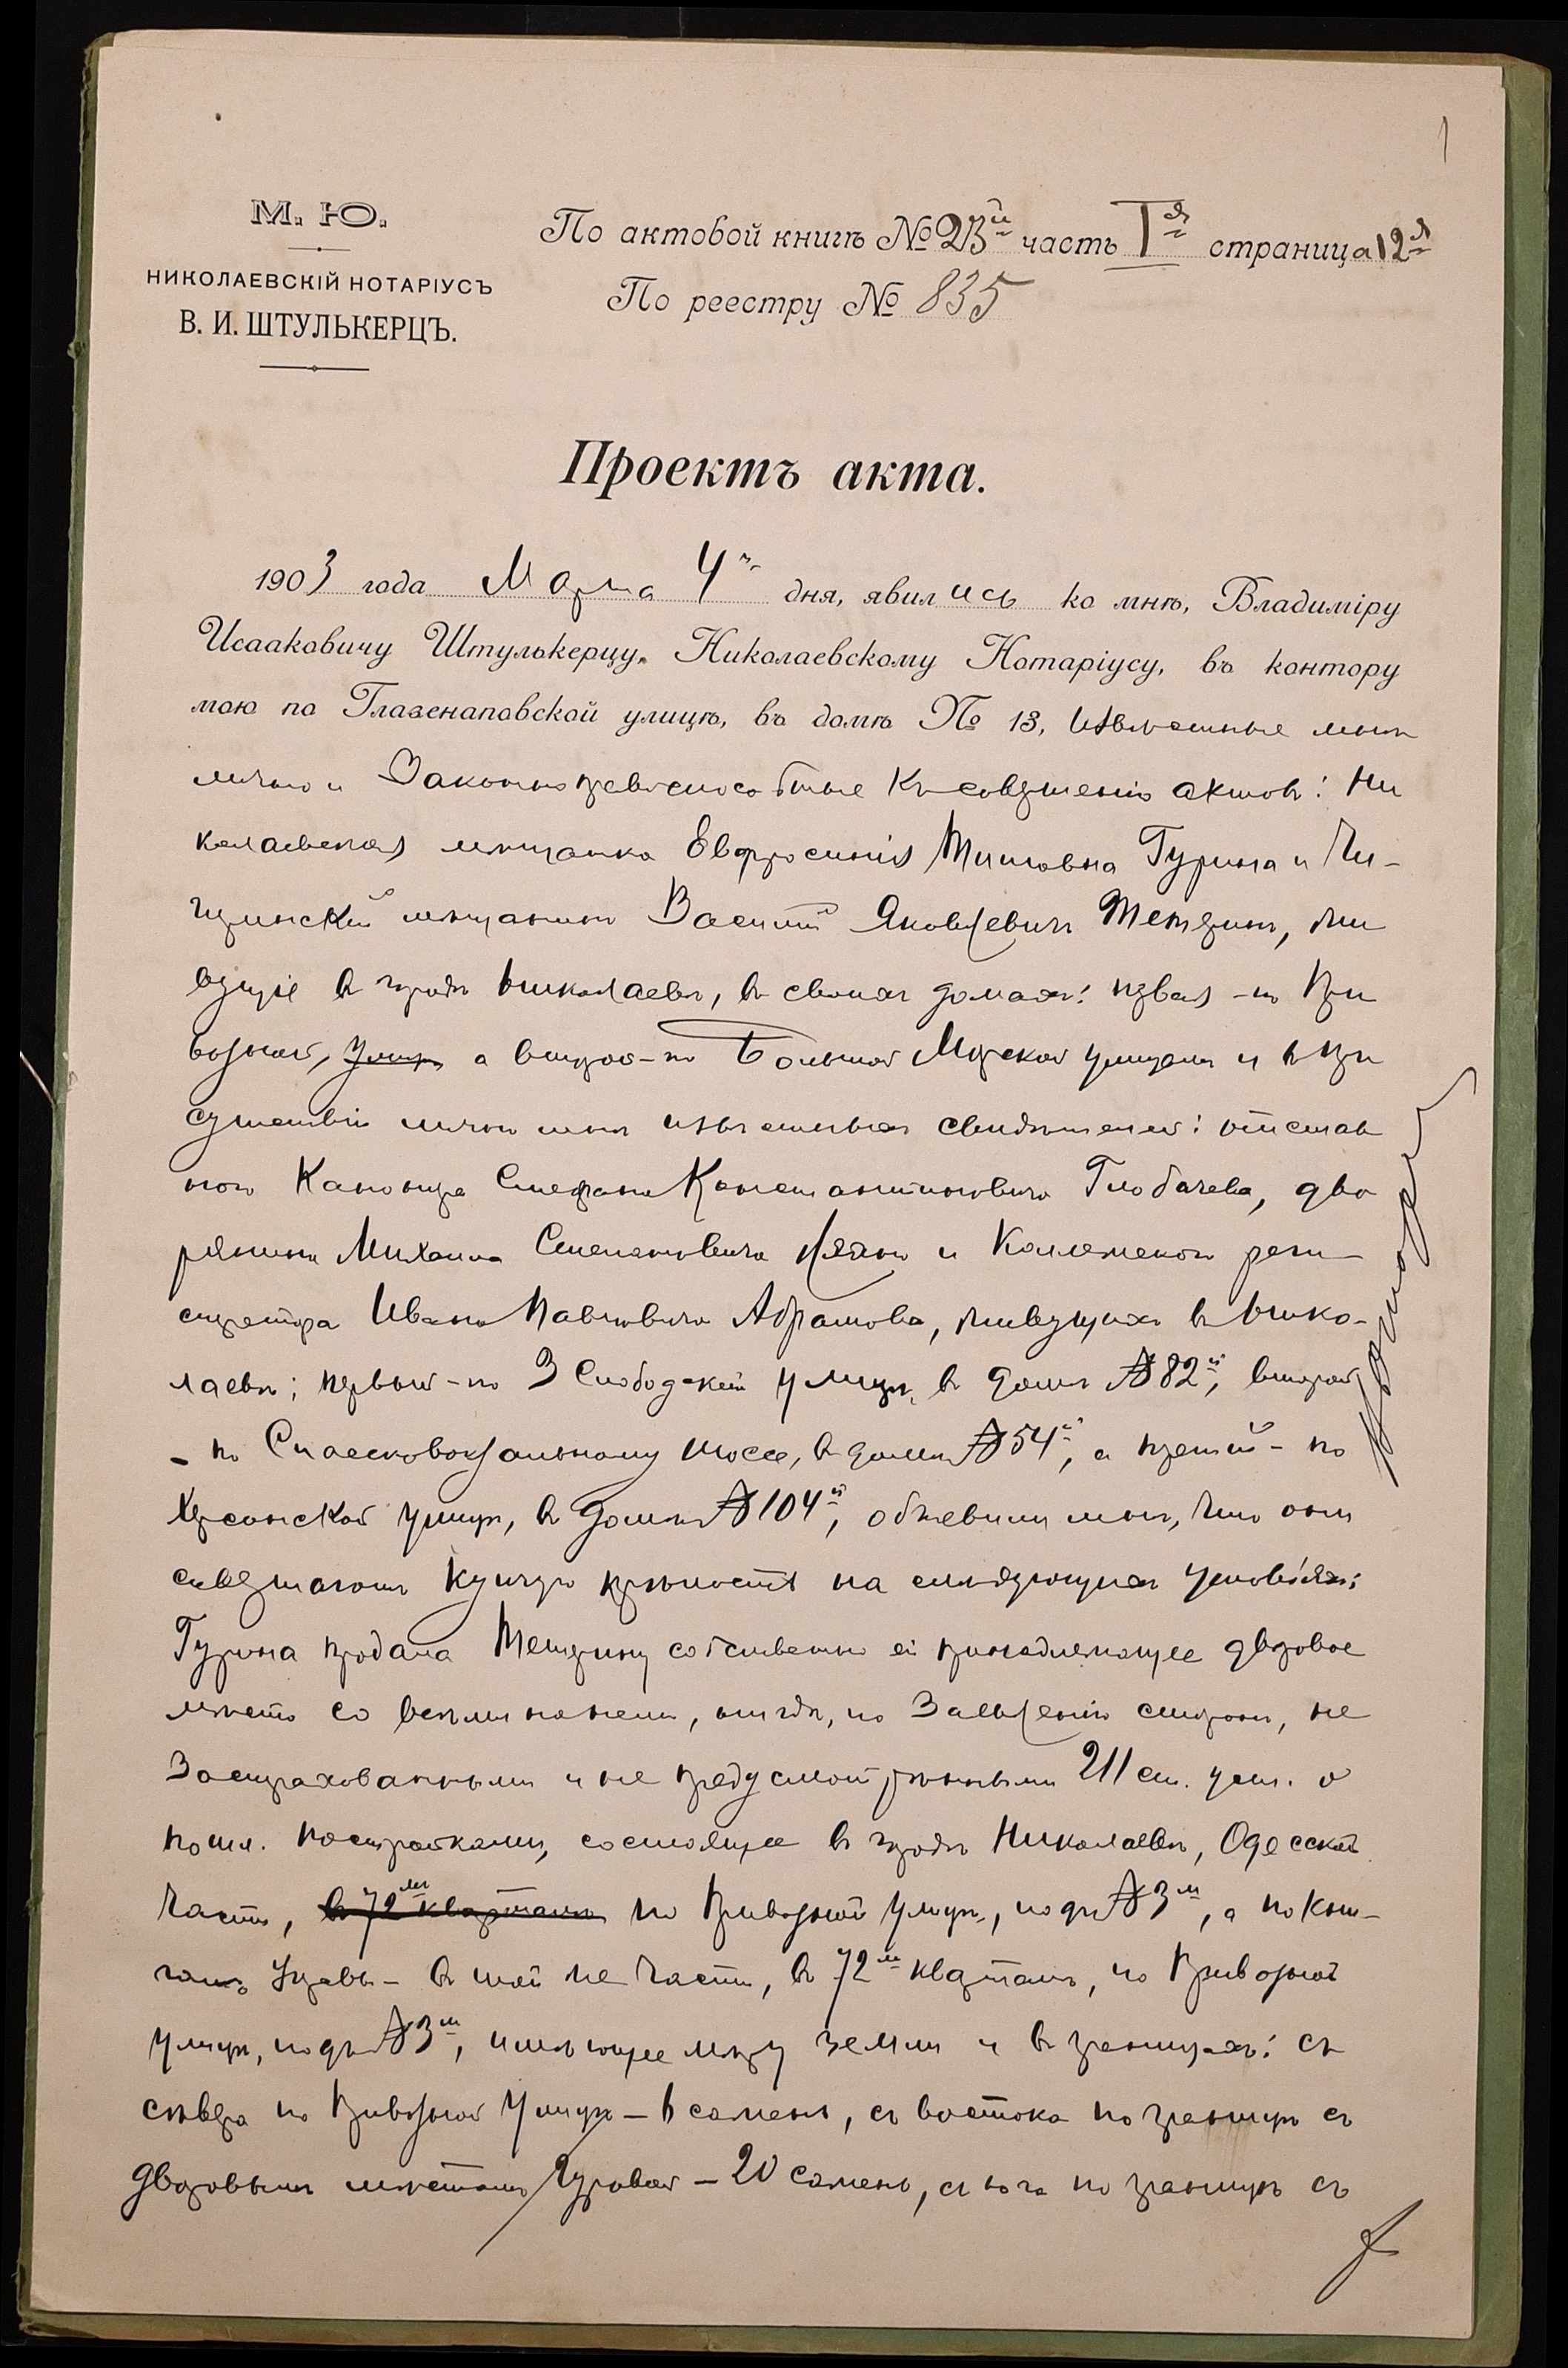 1
М. Ю.
НИКОЛАЕВСКІЙ НОТАРІУСЪ
В. И. ШТУЛЬКЕРЦЪ.
По актовой книгѣ № 23й часть Iя страница 12я
По реестру № 835
Проектъ акта.
1903 года Марта 4 дня, явились ко мнѣ, Владиміру
Исааковичу Штулькерцу, Николаевскому Нотаріусу, въ контору
мою по Глазенаповской улицѣ, въ домѣ № 13, извѣстные мнѣ
лично и законно правоспособные къ совершенію актовъ: Ни
колаевская мѣщанка Евфросинія Титовна Гурина и Чи-
гиринскій мѣщанинъ Василій Яковлевичъ Тетеринъ, жи
вущіе въ городѣ Николаевѣ, въ своихъ домахъ: первая - по При
возной, улицѣ а второй - по Большой Морской улицамъ и въ при
сутствіи лично мнѣ извѣстныхъ свидѣтелей: отстав
ного Канонира Стефана Константиновича Глобачева, дво
рянина Михаила Степановича и Коллежскаго реги
стратора Ивана Павловича Абрамова, живущихъ въ Нико-
лаевѣ; первый - по 3 Слободской улицѣ, въ домѣ № 82й, второй
- по Спасскововокзальному шоссе, въ домѣ № 54й, а третій - по
Херсонской улицѣ, въ домѣ № 104й, объявили мнѣ, что они
совершаютъ купчую крѣпость на слѣдующихъ условіяхъ:
Гурина продала Тетерину собственно ей принадлежащее дворовое
мѣсто со всѣми на немъ, нигдѣ, по заявленію сторонъ, не
застрахованными и не предусмотрѣнными 211 ст. уст. о
пошл. постройками, состоящее въ городѣ Николаевѣ, Одесской
части, въ 72мъ кварталѣ по Привозной улицѣ, подъ № 3м, а по кни-
гамъ Управы - въ той же части, въ 72м кварталѣ, по Привозной
улицѣ, подъ № 3м, имѣющее мѣру земли и въ границахъ: съ
сѣвера по Привозной улицѣ - сажень, съ востока по границѣ съ
дворовымъ мѣстомъ - 20 сажень, съ юга по границѣ съ